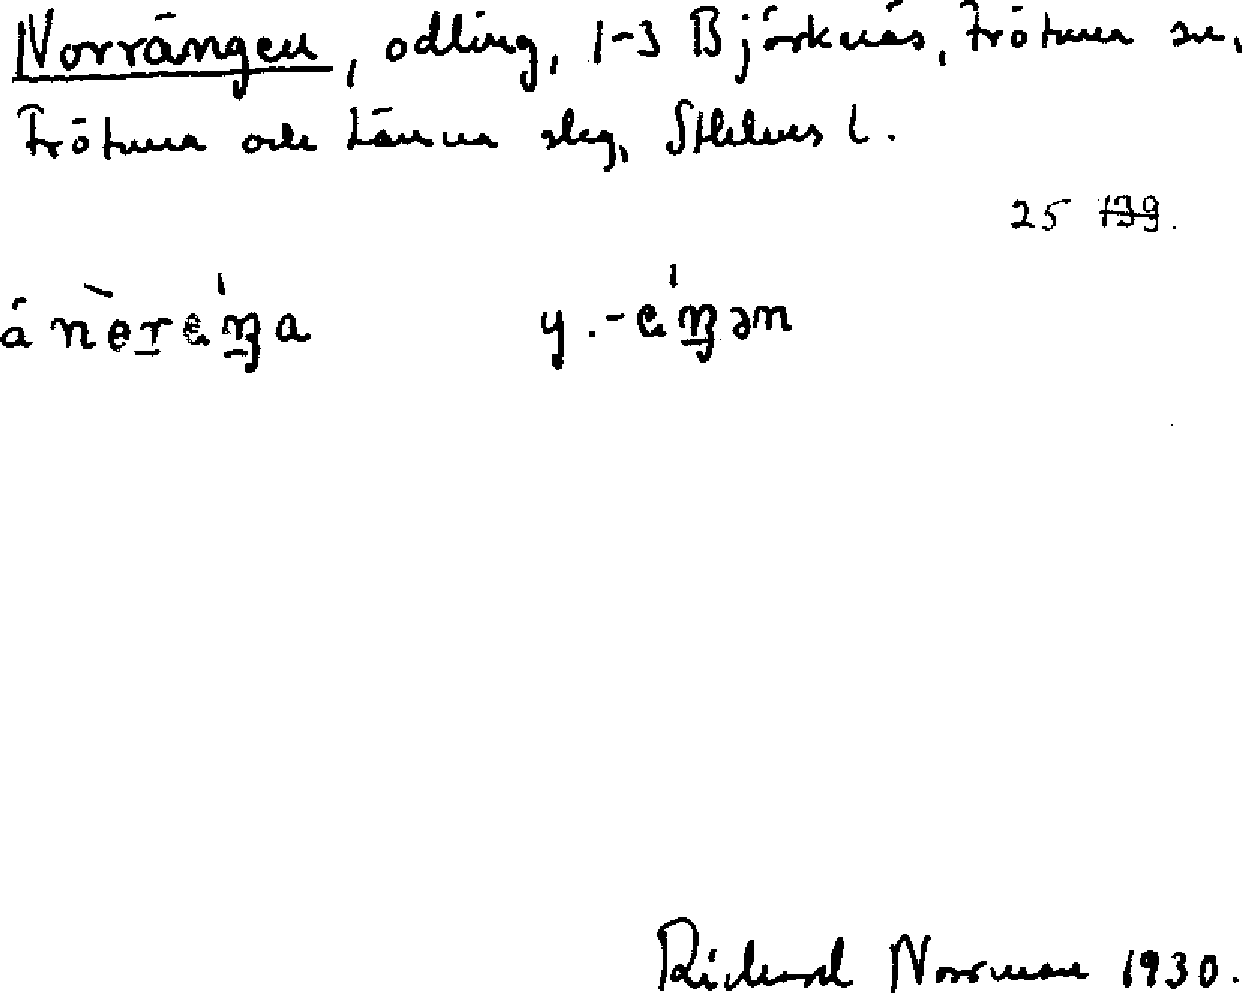 Norrängen, odling, 1-3 Björknäs, Frötuna sn,
Frötuna och Länna skg, Sthlms l.
25 139.
å nèreŋa y. -eŋən
Richard Norrman 1930.